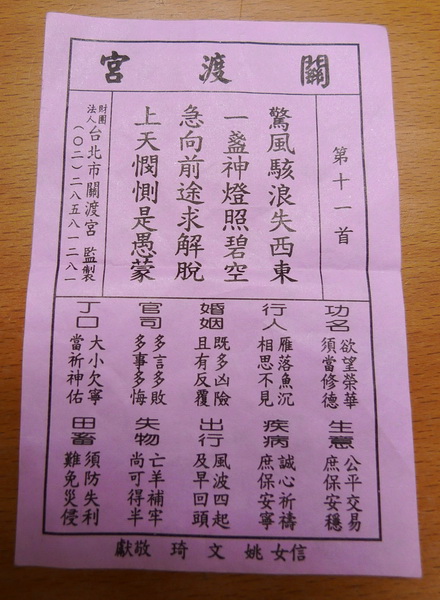 關渡宮
第十一首
驚風駭浪失西東
一盞神燈照碧空
急向前途求解脫
上天憫惻是愚蒙
財團法人台北市關渡宮 監製
(〇二)二八五八一二八一
功名
欲望榮華
須當修德
行人
雁落魚沉
相思不見
婚姻
既多凶險
且有反覆
官司
多言多敗
多事多悔
丁口
大小欠寧
當祈神佑
生意
公平交易
庶保安穩
疾病
誠心祈禱
庶保安寧
出行
風波四起
及早回頭
失物
亡羊補牢
尚可得半
田畜
須防失利
難免災侵
信女 姚文琦 敬獻